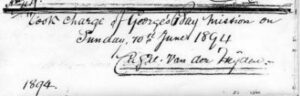 Took Charge of George's Bay Mission on
Sunday, 10th June 1894
Van der Heyden
1894.